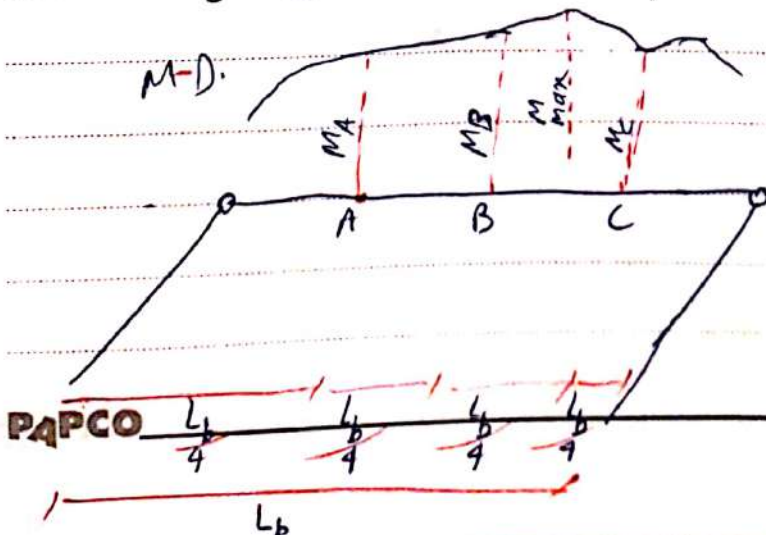 M-D.
M_A M_B M max M_C
A B C
PAPCO
L_b/4 L_b/4 L_b/4 L_b/4
L_b